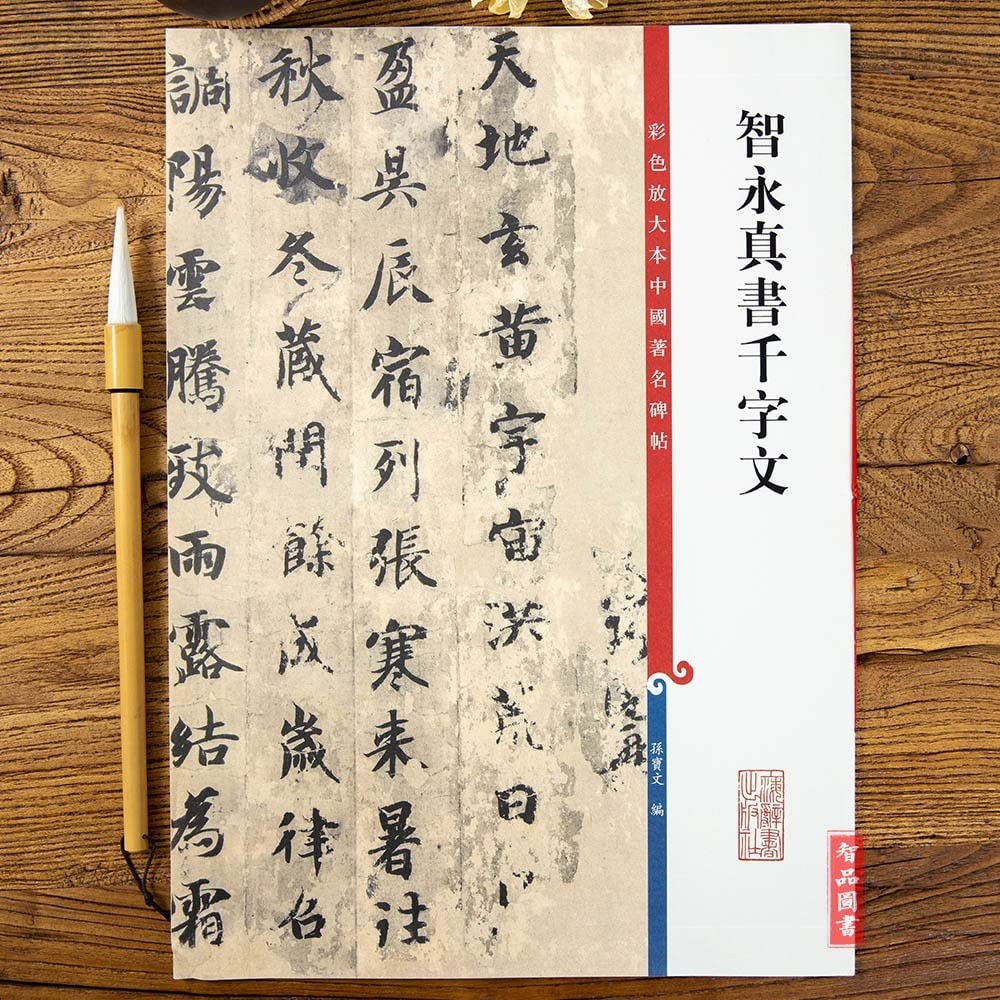 智永真書千字文
上海辭書出版社
智品圖書
彩色放大本中國著名碑帖
孫寶文 編
天地玄黄宇宙洪荒日
盈昃辰宿列張寒来暑往
秋收冬藏閏餘成歲律召
調陽雲騰致雨露結為霜